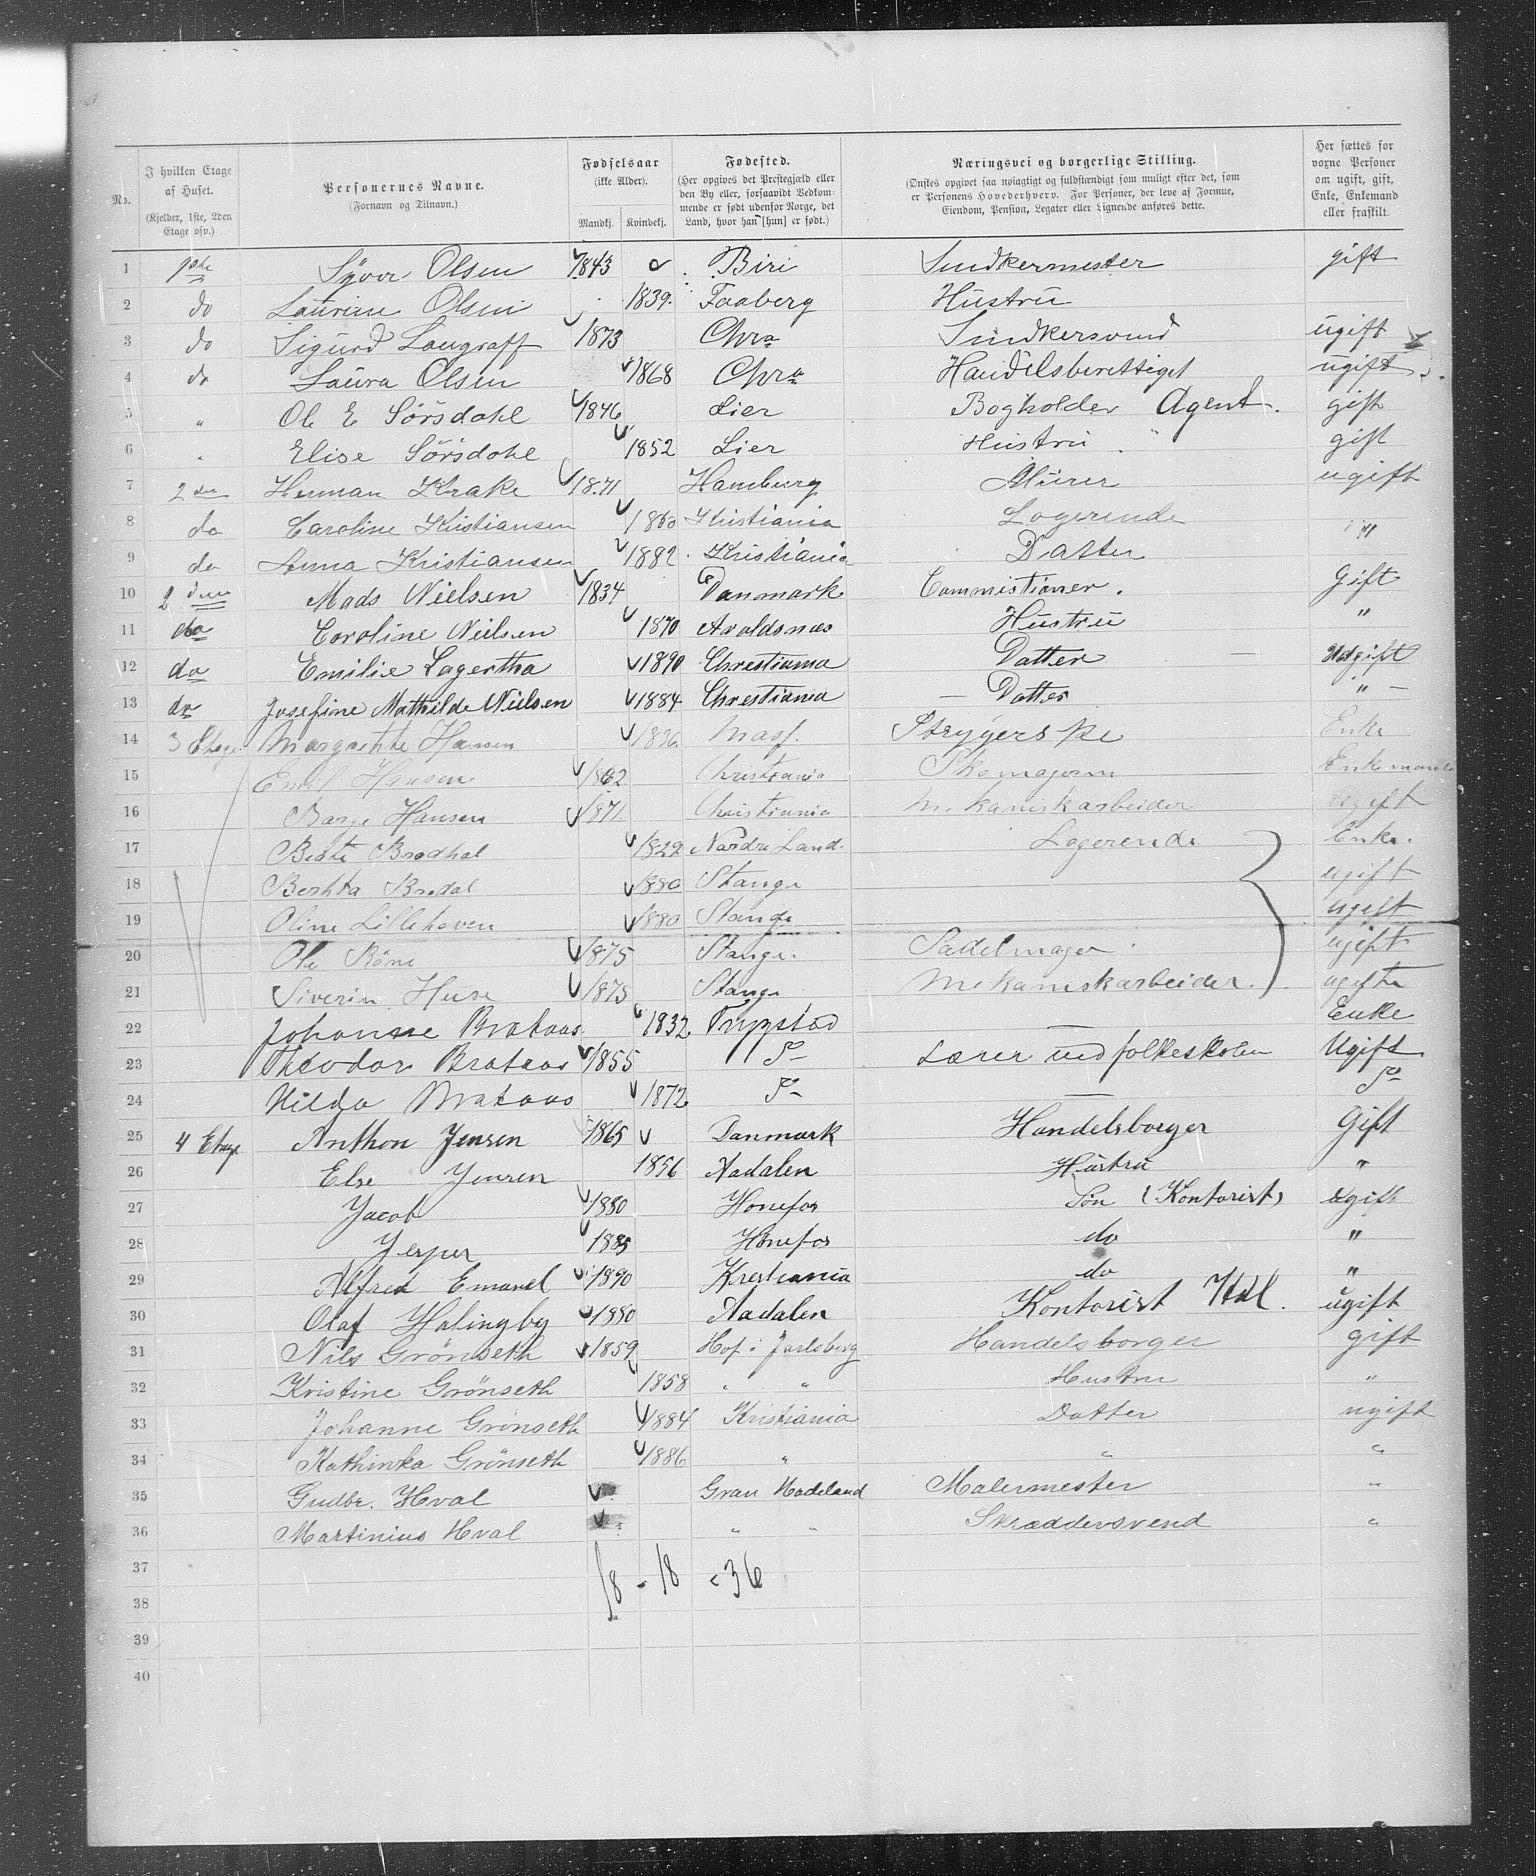 No. I hvilken Etage af Huset. (Kjelder, 1ste, 2den Etage osv.) Personernes Navne. (Fornavn og Tilnavn.) Fødselsaar (ikke Alder). Mandkj. Kvindekj. Fødested. (Her opgives det Prestegjæld eller den By eller, forsaavidt Bedkommende er født udenfor Norge, det Land, hvor han [hun] er født.) Næringsvei og borgerlige Stilling. (Ønskes opgivet saa nøiagtigt og fuldstændigt som muligt efter det, som er Personens Hovederhverv. For Personer, der leve af Formue, Eiendom, Pension, Legater eller Lignende anføres dette. Her sættes for voxne Personer om ugift, gift, Enke, Enkemand eller fraskilt.
1 1ste Syver Olsen 1843 Biri Snedkermester gift
2 do Laurine Olsen 1839. Faaberg Hustru
3 do Sigurd Langraff 1873 Chra Snedkersvend ugift
4 do Laura Olsen 1868 Chra Handelsberettiget ugift
5 " Ole E Sörsdahl 1846 Lier Bogholder Agent. gift
6 " Elise Sörsdahl 1852 Lier Hustru " gift
7 2den Herman Krake 1871 Hamburg Murer ugift
8 do Caroline Kristiansen 1860 Kristiania Logerende "
9 do Anna Kristiansen 1882. Kristiania Datter
10 2den Mads Nielsen 1834 Danmark Commistioner. Gift
11 do Caroline Nielsen 1870 Avaldsnæs Hustru "
12 do Emilie Lagertha 1890 Christiania Datter — Udgift
13 do Josefine Mathilde Nielsen 1884 Christiania — Datter " —
14 3 Etage Margrethe Hansen 1836 Strygerske Enke
15 Emil Hansen 1862 Christiania Skomagerm Enkemand
16 Børge Hansen 1871. Christiania Mekaniskarbeider ugift
17 Beate Brodhal 1822 Nordre Land. Logerende Enke.
18 Bertha Bredal 1880 Stange ugift
19 Oline Lillehoven 1880 Stange ugift
20 Ole Röne 1875 Stange. Sadelmager ugift
21 Siverin Huse 1875 Stange Mekaniskarbeider. ugifte
22 Johanne Brataas 1832 Trygstad — Enke
23 Theodor Brataas 1855 Do Lærer ved folkeskolen Ugift
24 Hilda Brataas 1872 Do — Do
25 4 Etage Anthon Jensen 1865 Danmark Handelsborger Gift
26 Else Jensen 1856 Aadalen Hustru "
27 Jacob 1880 Honefos Søn (Kontorist) Ugift
28 Jesper 1885 Hönefos do "
29 Alfred Emanel 1890 Krestiania do "
30 Olaf Halingby 1880 Aadalen Kontorist ugift
31 Nils Grönseth 1859 Hof i Jarlsberg Handelsborger gift
32 Kristine Grönseth 1858 " " Hustru "
33 Johanne Grönseth 1884 Kristiania Datter ugift
34 Kathinka Grönseth 1886 " " "
35 Gudbr. Hval Gran Hadeland Malermester "
36 Martinius Hval " " Skræddersvend "
37 18 - 18 = 36
38
39
40